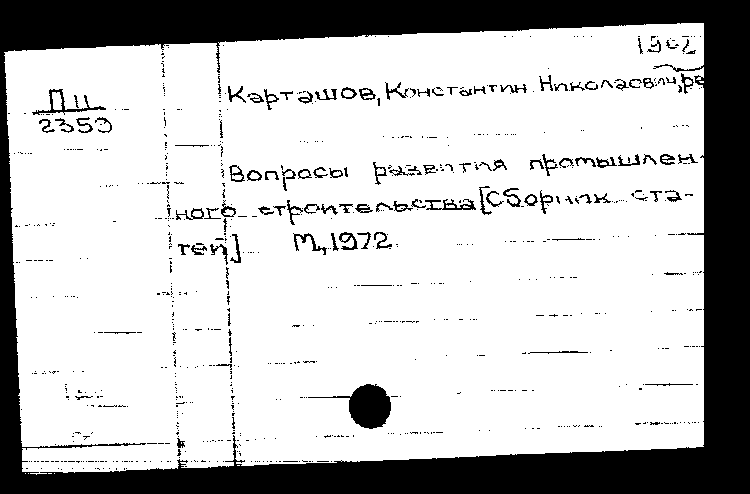 1902
П II
2359
Карташов, Константин Николаевич, ре
Вопросы развития промышлен-
ного строительства [Сборник ста-
тей] М., 1972